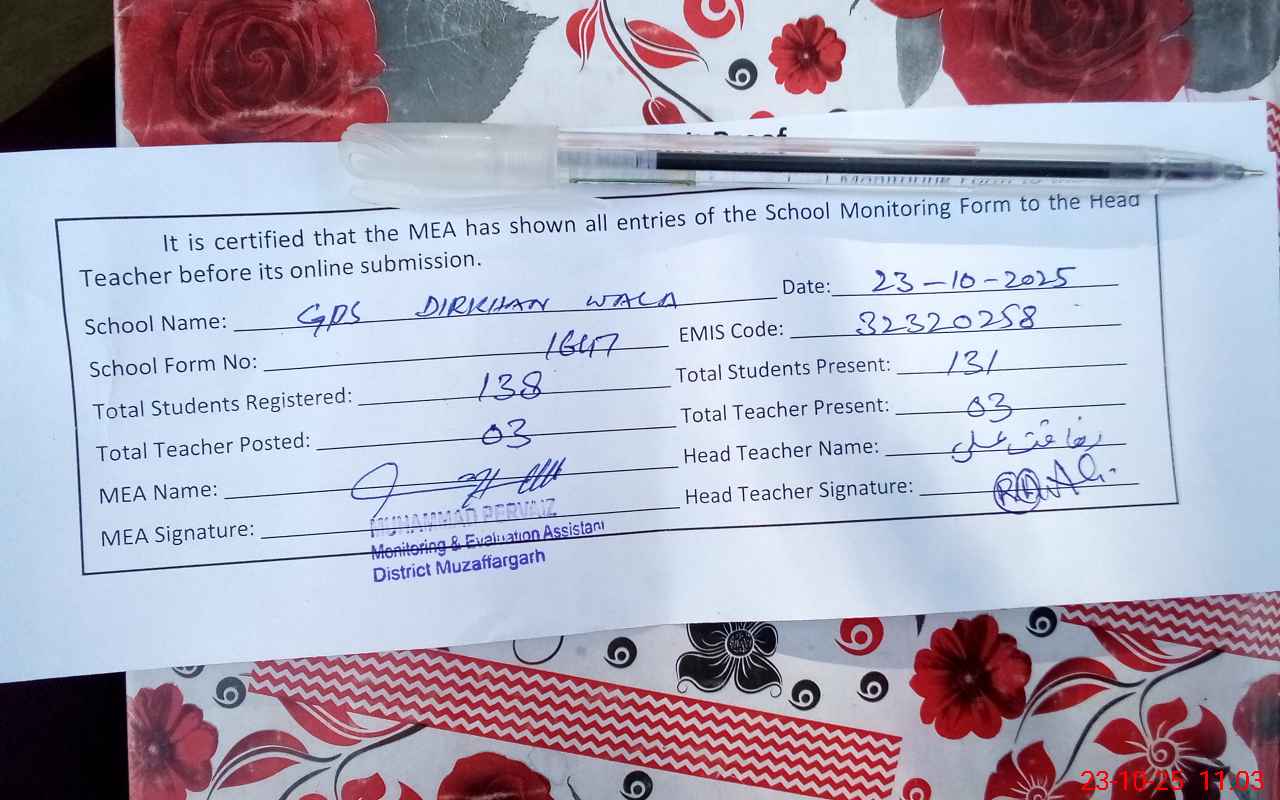 Proof
It is certified that the MEA has shown all entries of the School Monitoring Form to the Head
Teacher before its online submission.
School Name: GPS DIRKHAN WALA Date: 23-10-2025
School Form No: 1647 EMIS Code: 32320258
Total Students Registered: 138 Total Students Present: 131
Total Teacher Posted: 03 Total Teacher Present: 03
MEA Name: Head Teacher Name: رفاقت علی
MEA Signature: Head Teacher Signature:
MUHAMMAD PERVAIZ
Monitoring & Evaluation Assistant
District Muzaffargarh
23-10-25 11:03